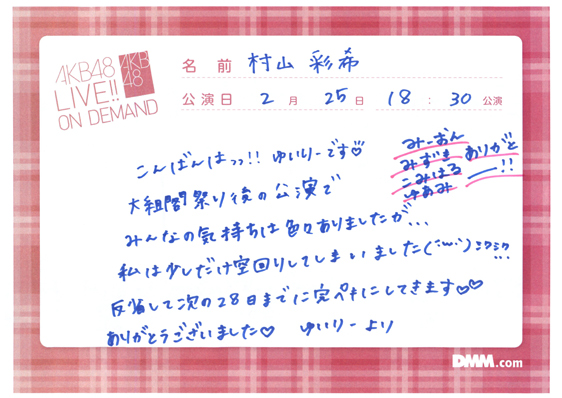 AKB48
LIVE!!
ON DEMAND
AKB
48
名前 村山 彩希
公演日 2月 25日 18:30公演
みーおん
みずき
こみはる
ゆあみ
ありがと
ー!!
こんばんはっっ!! ゆいりーです♡
大組閣祭り後の公演で
みんなの気持ちは色々ありましたが...
私は少しだけ空回りしてしまいました(´・ω・`)シクシク...
反省して次の28日までに完ペキにしてきます♡♡
ありがとうございました♡ ゆいりーより
DMM.com